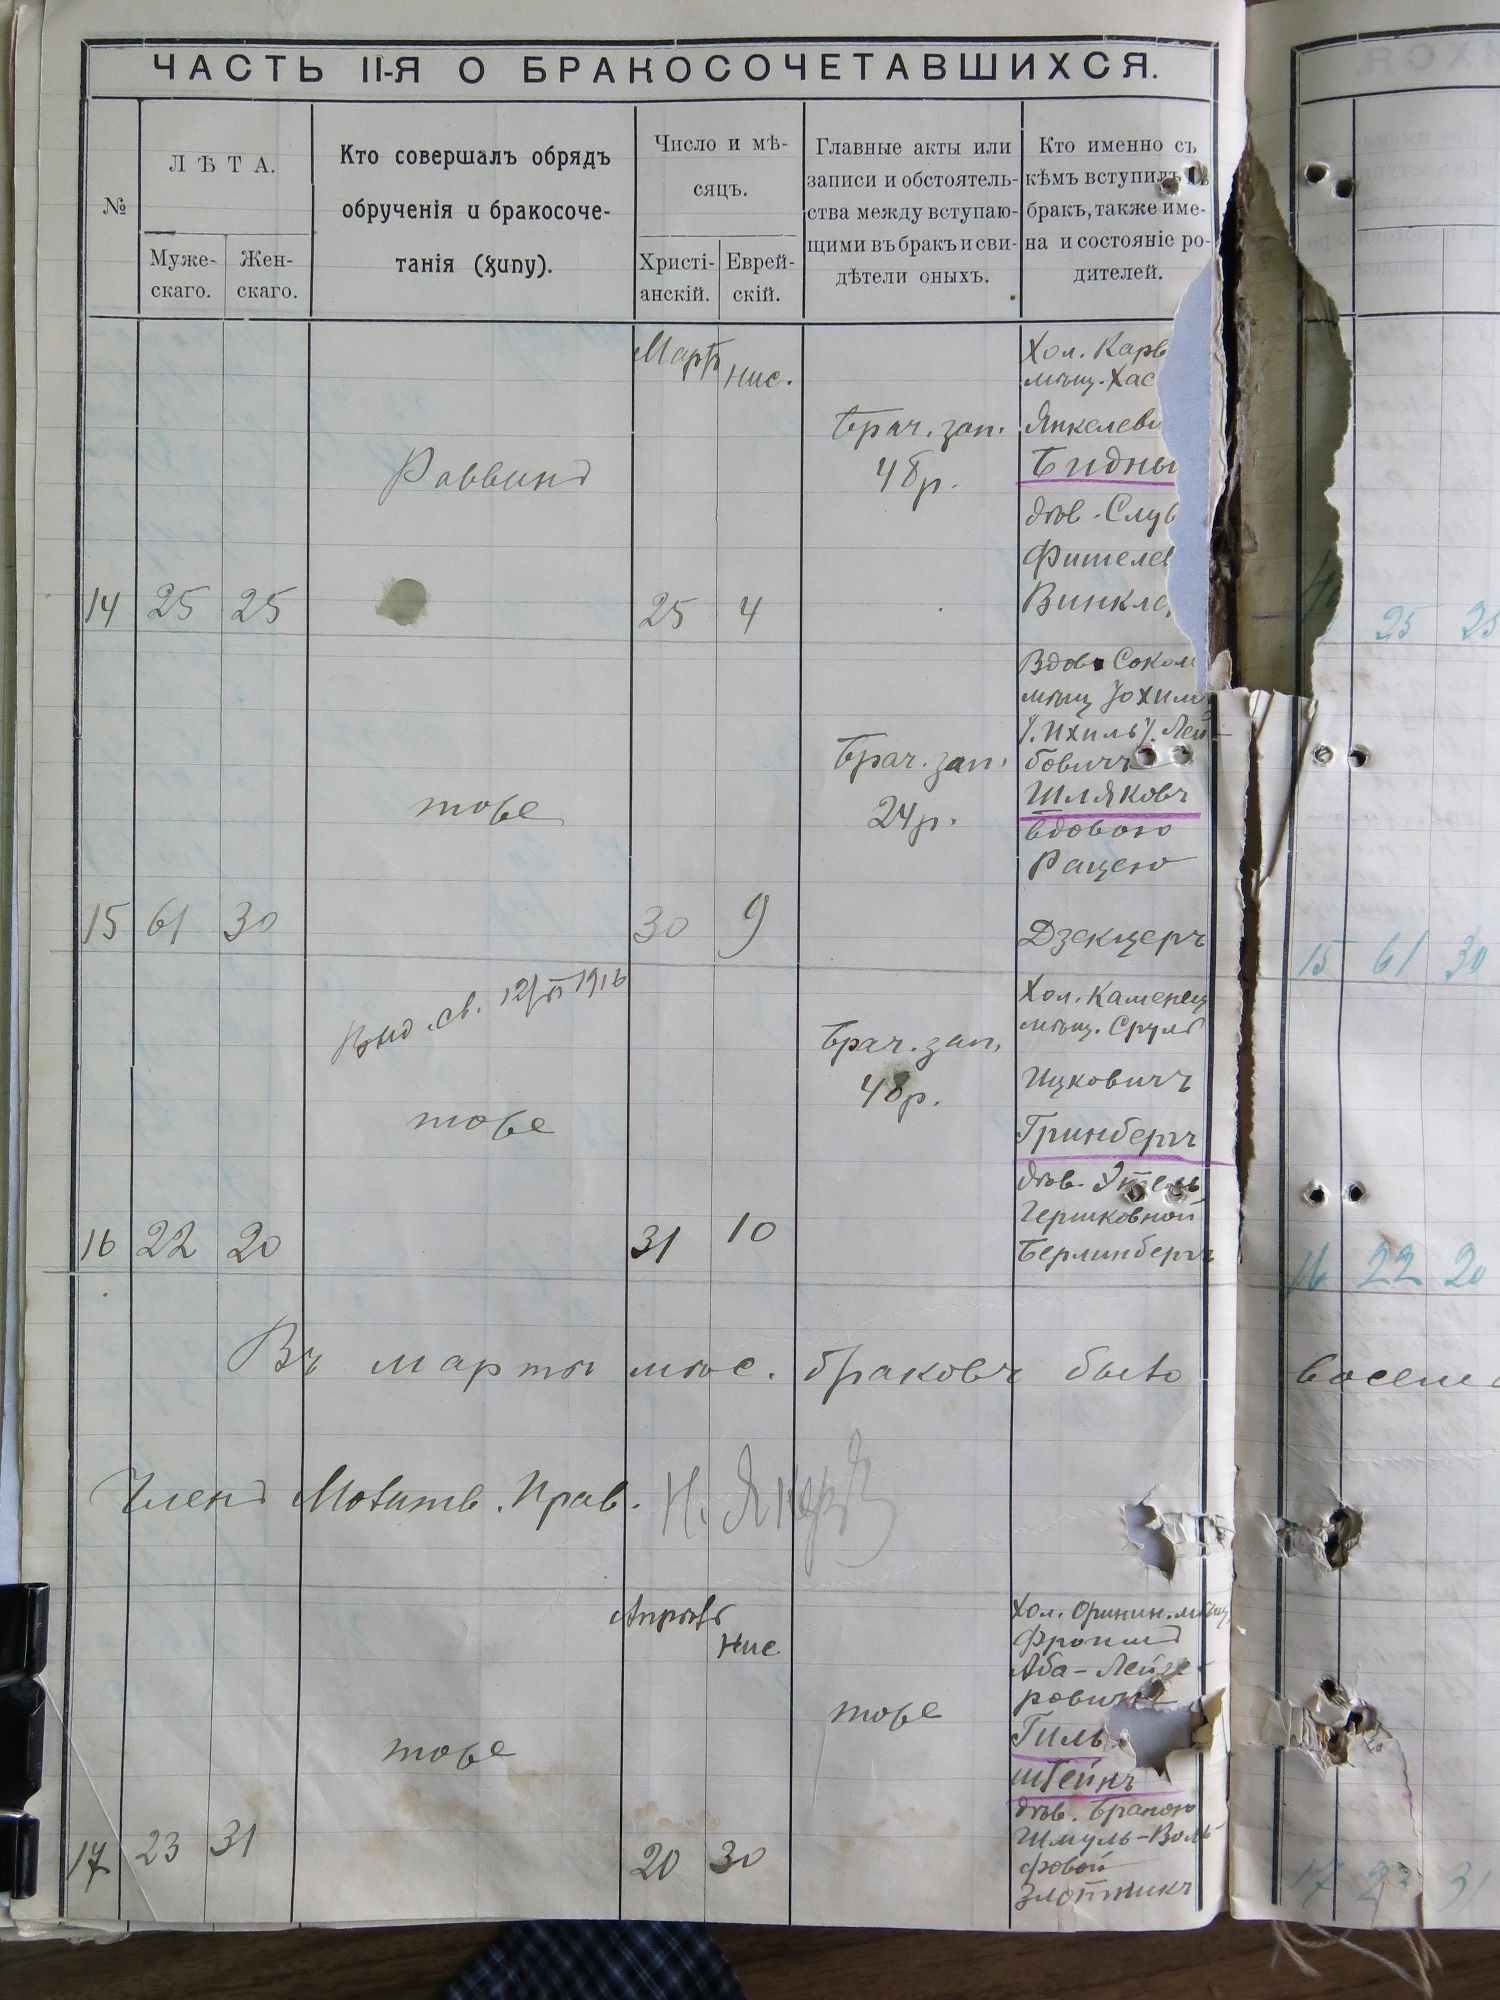 ЧАСТЬ II-Я О БРАКОСОЧЕТАВШИХСЯ.
№
ЛѢТА.
Муже-
скаго.
Жен-
скаго.
Кто совершалъ обрядъ
обрученія и бракосоче-
танія (хупу).
Число и мѣ-
сяцъ.
Христі-
анскій.
Еврей-
скій.
Главные акты или
записи и обстоятель-
ства между вступаю-
щими въ бракъ и сви-
дѣтели оныхъ.
Кто именно съ
кѣмъ вступилъ въ
бракъ, также име-
на и состояніе ро-
дителей.
14 25 25
Раввинъ
Мартъ Нис.
25 4
Брач. зап.
48р.
Хол. Карв
мѣщ. Хас
Янкелеви
Бидны
дѣв. Слув
Фишелев
Винкла
15 61 30
тоже
30 9
Брач. зап.
24р.
Вдов. Сокол
мѣщ Іохил
/. Ихиль /. Лей-
бовичъ
Шляковъ
вдовою
Рацею
Дзекцеръ
16 22 20
Выд. св. 12/VI 1916
тоже
31 10
Брач. зап.
48р.
Хол. Каменец
мѣщ. Сруль
Ицковичъ
Гринбергъ
дѣв. Этель
Гершковной
Берлинбергъ
Въ мартѣ мѣс. браковъ было восем
Членъ Молитв. Прав. Н.
17 23 31
тоже
Апрѣль Нис
20 30
тоже
Хол. Оринин. мѣщ.
Фроимъ
Аба-Лейзе-
ровичъ
Гиль
штейнъ
дѣв. Браною
Шмуль-Воль
фовой
Злотникъ
25 25
15 61 30
16 22 20
17 23 31